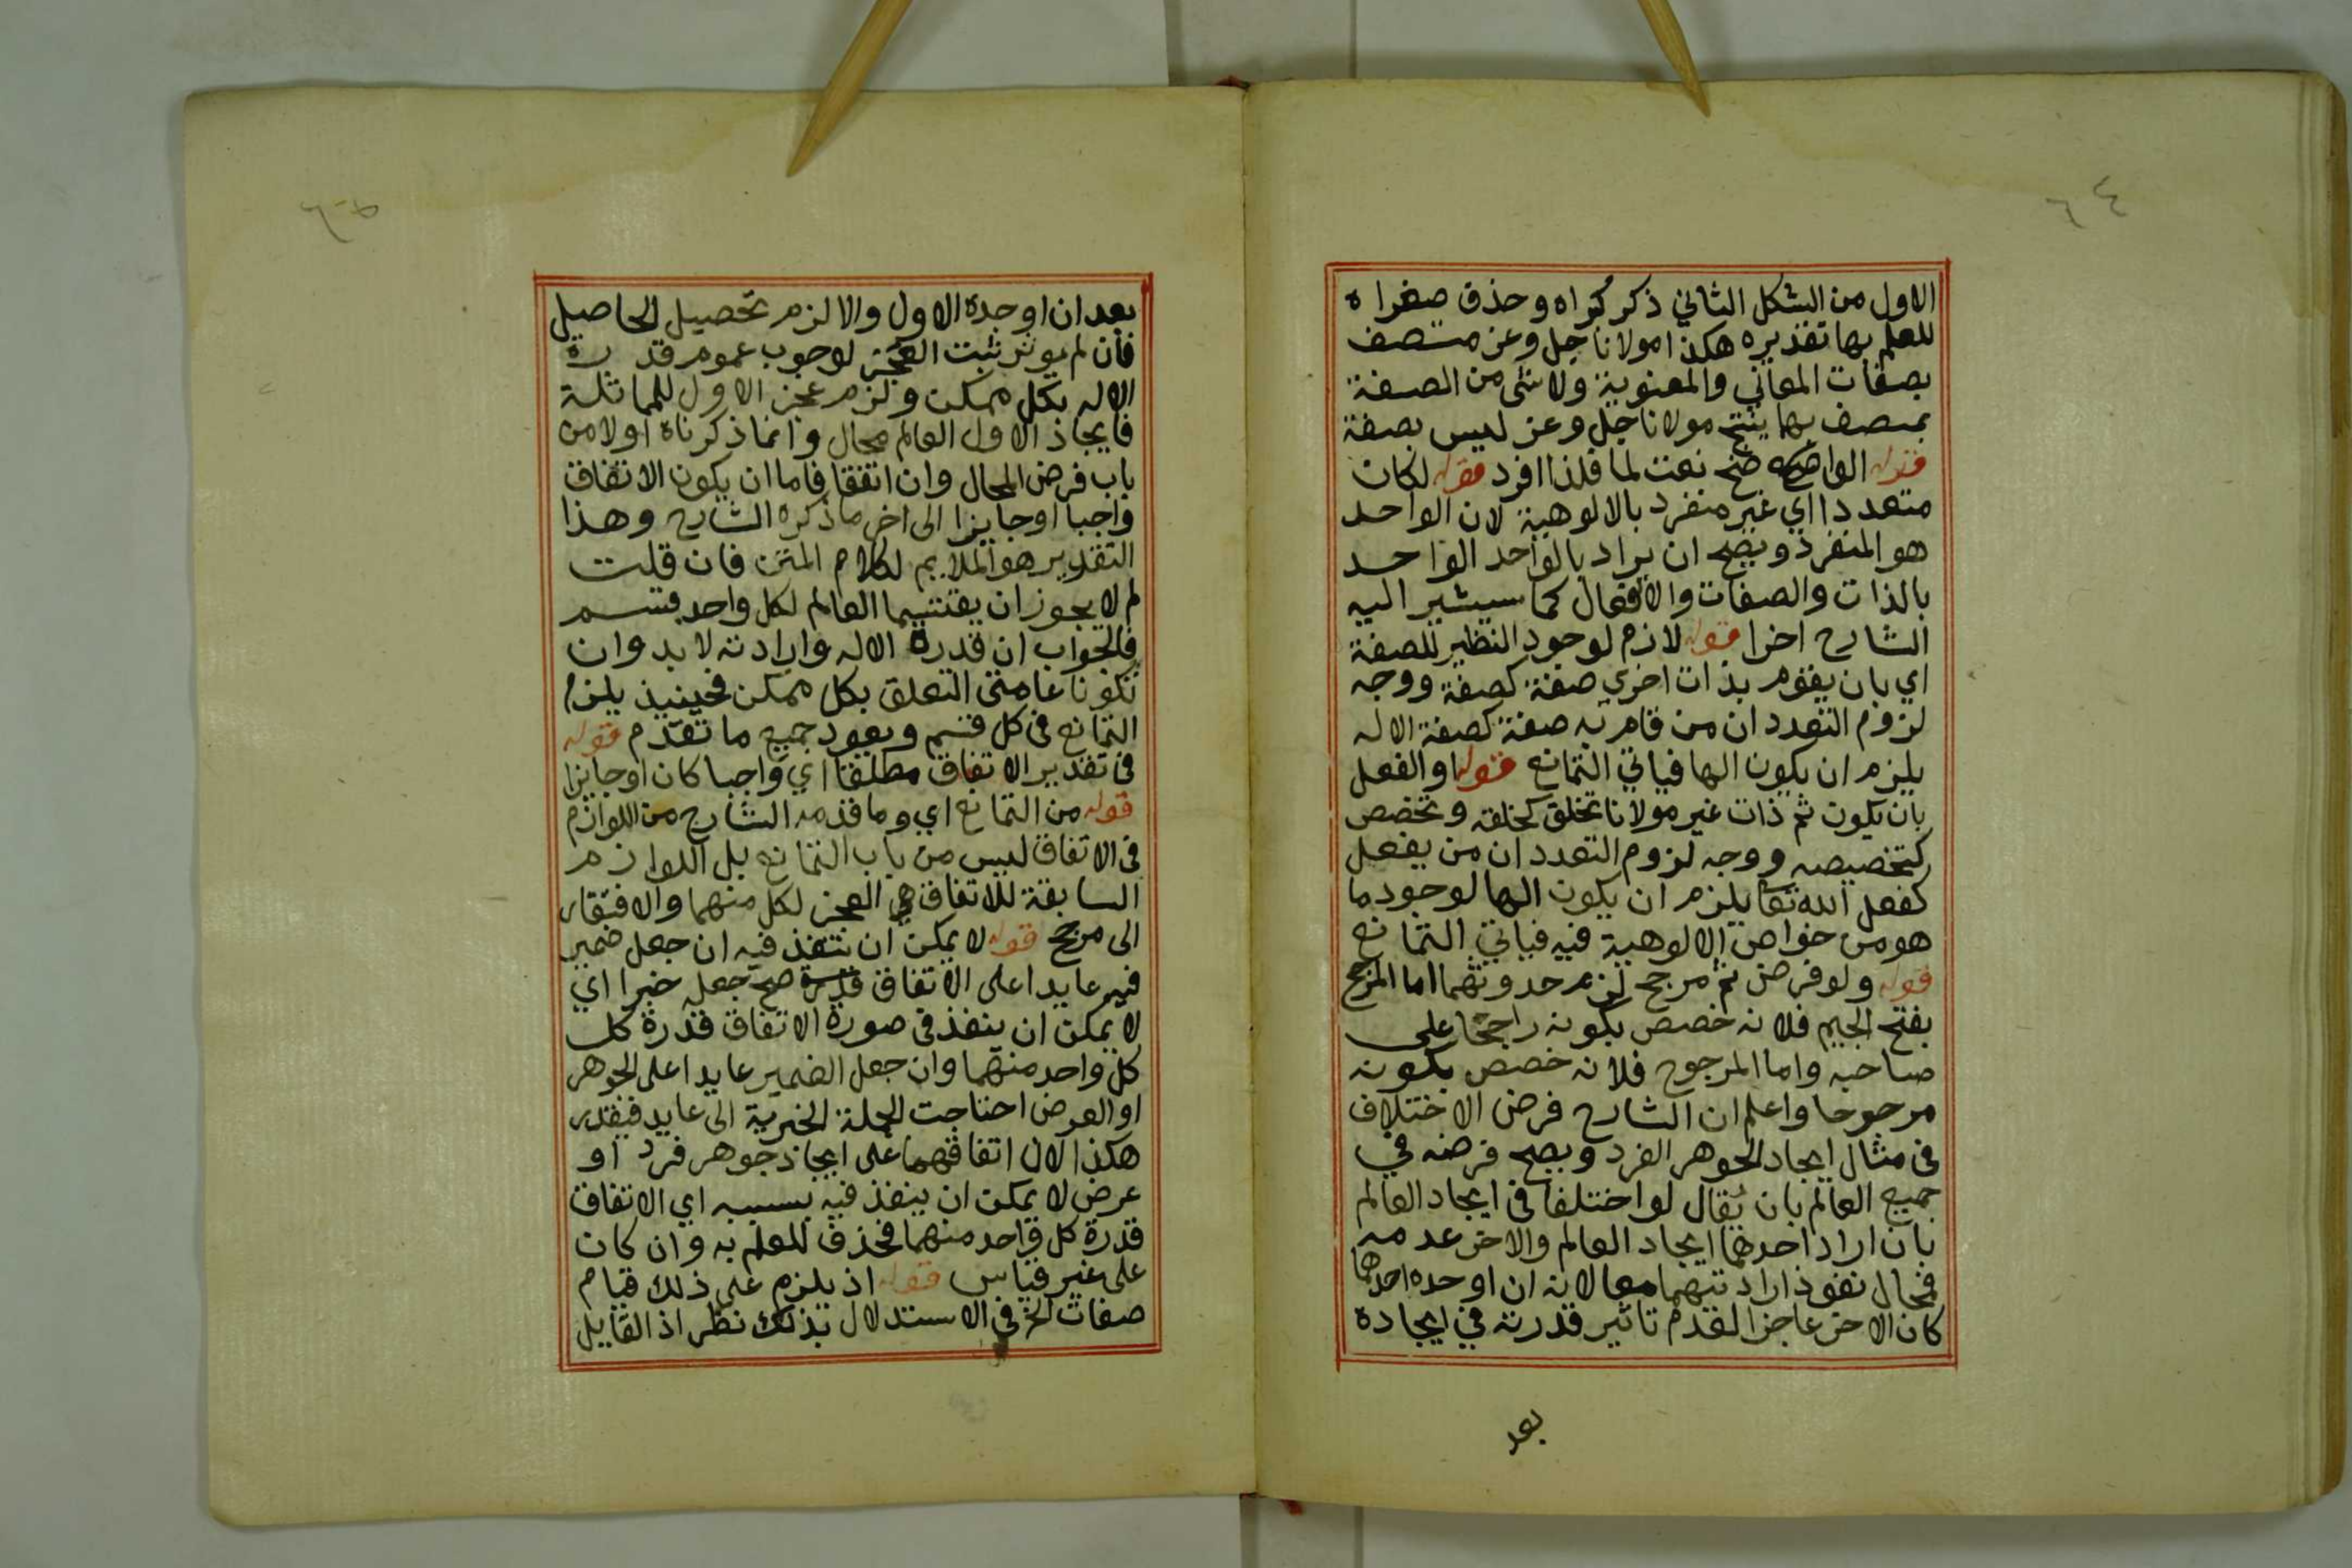 ٦٤
الاول من الشكل الثاني ذكر كبراه وحذف صغراه
للعلم بها تقديره هكذا مولانا جل وعز متصف
بصفات المعاني والمعنوية ولا شئ من الصفة
بمتصف بها ينتج مولانا جل وعز ليس بصفة
قوله الواضحة صح نعت لما فلذا افرد قوله لكان
متعددا اي غير منفرد بالالوهية لان الواحد
هو المنفرد ويصح ان يراد بالواحد الواحد
بالذات والصفات والافعال كما سيشير اليه
الشارح اخرا قوله لازم لوجود النظير للصفة
اي بان يقوم بذات اخري صفة كصفة ووجه
لزوم التعدد ان من قام به صفة كصفة الاله
يلزم ان يكون الها فياتي التمانع قوله او الفعل
بان يكون ثم ذات غير مولانا تخلق كخلقه وتخصص
كتخصيصه ووجه لزوم التعدد ان من يفعل
كفعل الله تعا يلزم ان يكون الها لوجود ما
هو من خواص الالوهية فيه فياتي التمانع
قوله ولو فرض ثم مرجح لزم حدوثهما اما المرجح
بفتح الجيم فلانه خصص بكونه راجحا على
صاحبه واما المرجوح فلانه خصص بكونه
مرجوحا واعلم ان الشارح فرض الاختلاف
في مثال ايجاد الجوهر الفرد ويصح فرضه في
جميع العالم بان يقال لو اختلفا في ايجاد العالم
بان اراد احدهما ايجاد العالم والاخر عدمه
فمحال نفوذ ارادتيهما معا لانه ان اوجده احدهما
كان الاخر عاجزا لعدم تاثير قدرته في ايجاده
بعد
بعد ان اوجده الاول والا لزم تحصيل الحاصل
فان لم يوثر ثبت العجز لوجوب عموم قدرة
الاله بكل ممكن ولزم عجز الاول للمماثلة
فايجاد الاول العالم محال وانما ذكرناه اولا من
باب فرض المحال وان اتفقا فاما ان يكون الاتفاق
واجبا او جايزا الى اخر ما ذكره الشارح وهذا
التقدير هو الملايم لكلام المتن فان قلت
لم لا يجوز ان يقتسما العالم لكل واحد قسم
فالجواب ان قدرة الاله وارادته لا بد وان
تكونا عامتي التعلق بكل ممكن فحينيذ يلزم
التمانع في كل قسم ويعود جميع ما تقدم قوله
في تقدير الاتفاق مطلقا اي واجبا كان او جايزا
قوله من التمانع اي وما قدمه الشارح من اللوازم
في الاتفاق ليس من باب التمانع بل اللوازم
السابقة للاتفاق هي العجز لكل منهما والافتقار
الى مرجح قوله لا يمكن ان تنفذ فيه ان جعل ضمير
فيه عايدا على الاتفاق صح جعله خبرا اي
لا يمكن ان ينفذ في صورة الاتفاق قدرة كل
كل واحد منهما وان جعل الضمير عايدا على الجوهر
او العرض احتاجت الجملة الخبرية الى عايد فيقدر
هكذا لان اتفاقهما على ايجاد جوهر فرد او
عرض لا يمكن ان ينفذ فيه بسببه اي الاتفاق
قدرة كل واحد منهما فحذف للعلم به وان كان
على غير قياس قوله اذ يلزم على ذلك قيام
صفات الخ في الاستدلال بذلك نظر اذ القايل